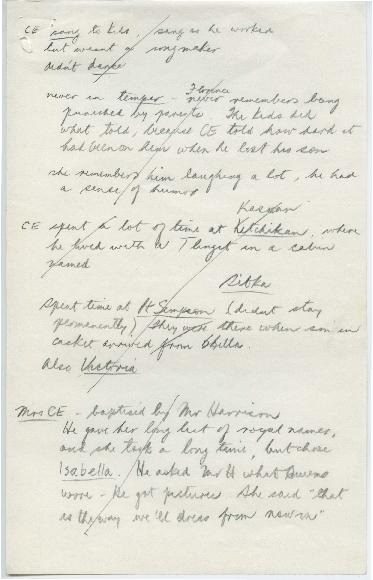 CE sang to kids, sang as he worked
but wasn't a songmaker
didn't dance
never in temper - Florence never remembers being
punished by parents. The kids did
what told, because CE told how hard it
had been on them when he lost his son
she remembers him laughing a lot, he had
a sense of humor
Kasaan
CE spent a lot of time at Ketchikan, where
he lived with a Tlingit in a cabin
named
Sitka
Spent time at Pt Simpson (didn't stay
permanently) they were there when son in
casket arrived from Bella.
Also Victoria
Mrs CE - baptised by Mr Harrison
He gave her long list of royal names,
and she took a long time, but chose
Isabella. He asked Mr H what Queens
wore - He got pictures. She said "that
is the way we'll dress from now on"